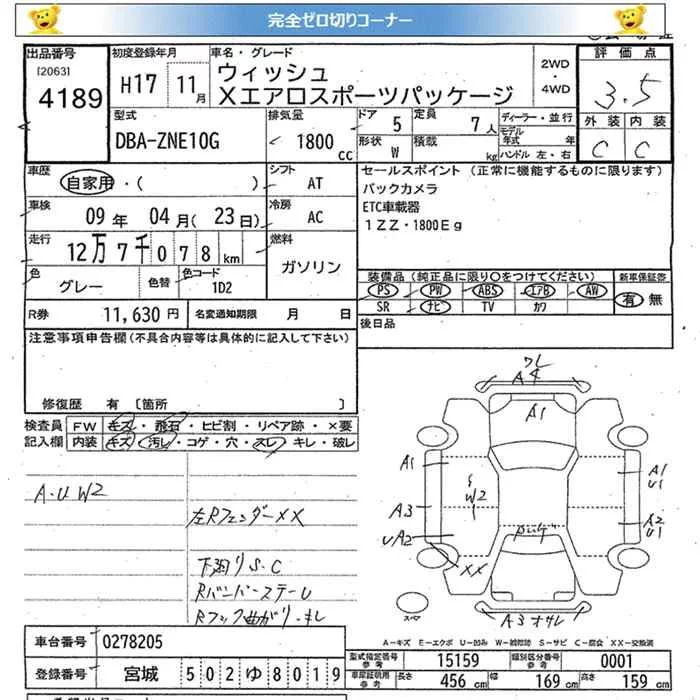 完全ゼロ切りコーナー
出品番号 初度登録年月 車名・グレード 2WD 評価点
[2063] H17 11月 ウィッシュ ・
4189 Xエアロスポーツパッケージ 4WD 3.5
型式 排気量 ドア 5 定員 7人 ディーラー・並行 外装 内装
DBA-ZNE10G 1800cc 形状 W 積載 kg モデル年式 年 C C
ハンドル 左・右
車歴 自家用・( ) シフト AT セールスポイント (正常に機能するものに限ります)
車検 09年 04月(23日) 冷房 AC バックカメラ
ETC車載器
走行 12万7千078km 燃料 ガソリン 1ZZ・1800Eg
色 グレー 色替 色コード 1D2 装備品(純正品に限り○をつけてください) 新車保証書
PS PW ABS エアB AW 有 無
R券 11,630円 名変通知期限 月 日 SR ナビ TV カワ
注意事項申告欄(不具合内容等は具体的に記入して下さい) 後日品
修復歴 有 [箇所 ]
検査員 FW キズ・飛石・ヒビ割・リペア跡・×要
記入欄 内装 キズ・汚レ・コゲ・穴・スレ・キレ・破レ
ワレ
A4
A1
A1
A1
U1
A・U W2
S
W2
左RフェンダーXX
A3
A2
U1
UA2
XX
下廻りS・C
RバンパーステーU
Rフック曲がり・キレ
スペア
A3オサレ
A-キズ E-エクボ U-凹み W-補修跡 S-サビ C-腐食 XX-交換済
車台番号 0278205
型式指定番号 参考 15159 類別区分番号 参考 0001
登録番号 宮城 502ゆ8019
車庫証明用 参考 長さ 456cm 幅 169cm 高さ 159cm